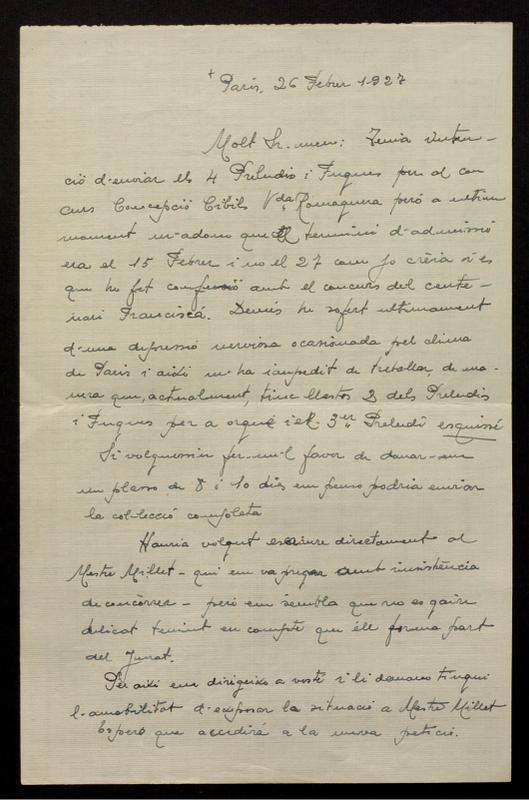 + Paris, 26 Febrer 1927
Molt Sr. meu: Tenia inten-
ció d'enviar els 4 Preludis i Fugues per al con
curs Concepció Cibils Vda. Romaguera però a últim
moment m'adono que el termini d'admissió
era el 15 Febrer i no el 27 com jo crèia si es
que ho fet confusió amb el concurs del cente-
nari Franciscá. Demés he sofert ultimament
d'una depressió nerviosa ocasionada pel clima
de Paris i aixó m'ha impedit de treballar, de ma-
nera que, actualment, tinc llestos 2 dels Preludis
i Fugues per a orgue i el 3er Preludi esquissé
Si volguessin fer-me'l favor de donar-em
un plasso de 8 i 10 dies em penso podria enviar
la col·lecció completa
Hauria volgut escriure directament al
Mestre Millet - qui em va pregar amb insistència
de concòrrer - però em sembla que no es gaire
delicat tenint en compte que éll forma part
del Jurat.
Per aixó em dirigeixo a vosté i li demano tingui
l'amabilitat d'exposar la situació a Mestre Millet
Espero que accedirá a la meva petició.